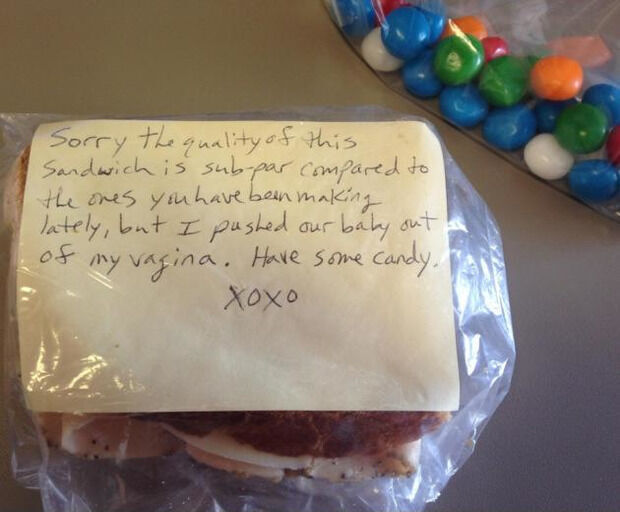 Sorry the quality of this
sandwich is sub-par compared to
the ones you have been making
lately, but I pushed our baby out
of my vagina. Have some candy.
XOXO